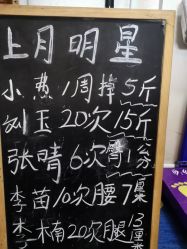 上月明星
小燕1周掉5斤
刘玉20次15斤
张晴6次臀1公分
李苗10次腰7厘
李楠20次腿13厘米